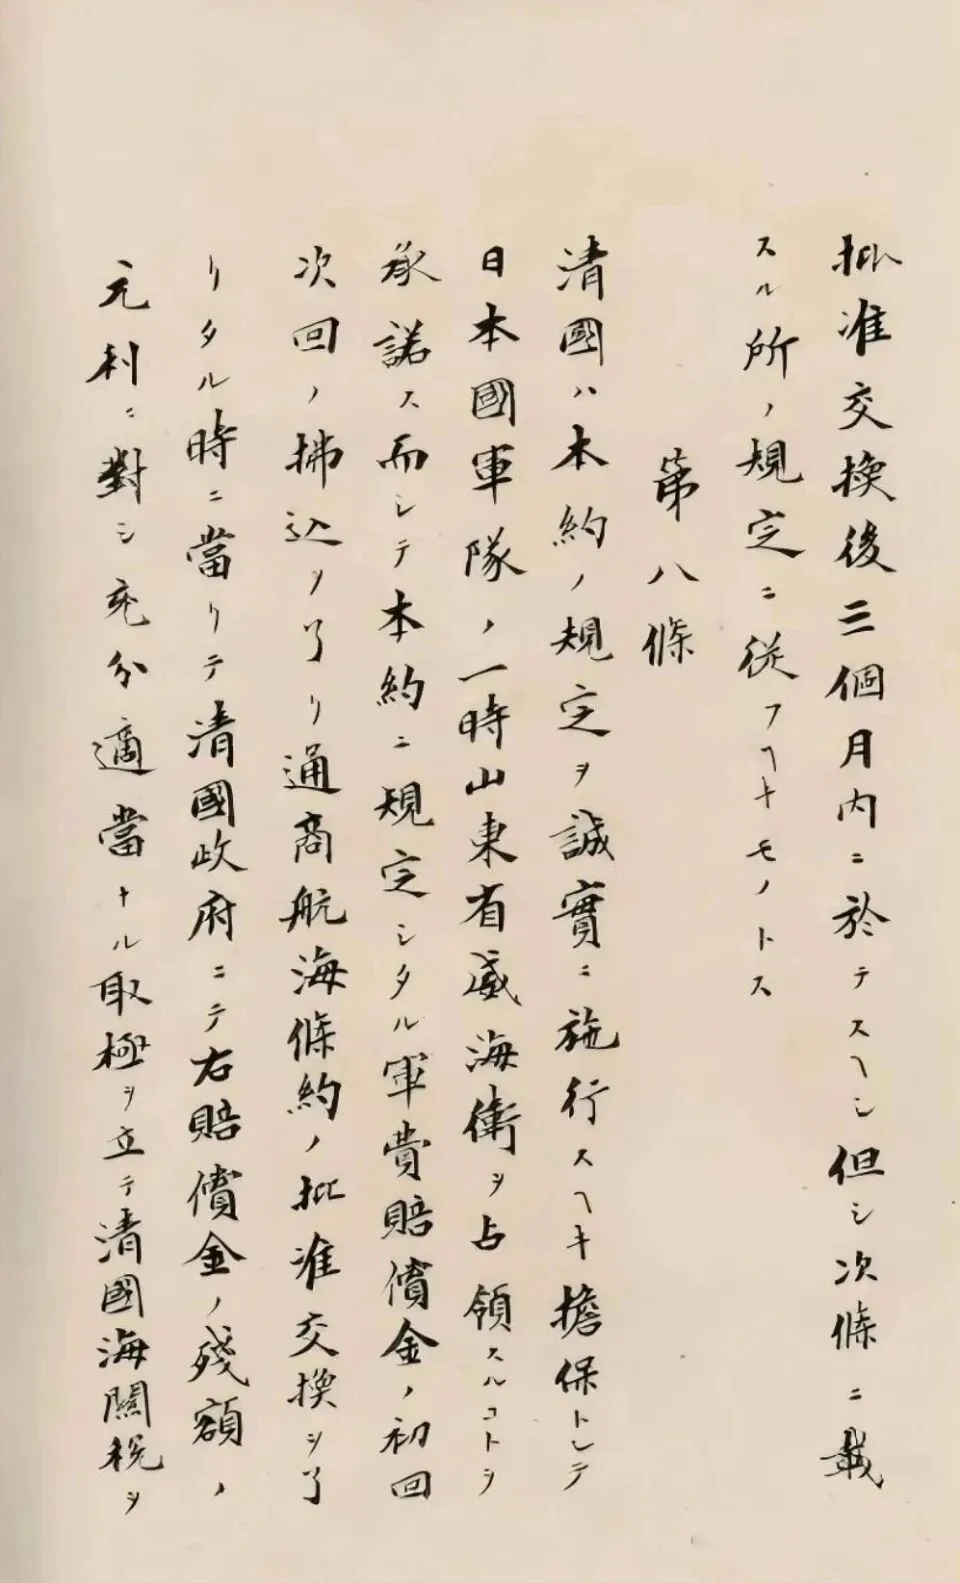 批准交換後三個月内ニ於テスヘシ但シ次條ニ載
スル所ノ規定ニ從フヘキモノトス
第八條
清國ハ本約ノ規定ヲ誠實ニ施行スヘキ擔保トシテ
日本國軍隊ノ一時山東省威海衛ヲ占領スルコトヲ
承諾ス而シテ本約ニ規定シタル軍費賠償金ノ初回
次回ノ拂込ヲ了リ通商航海條約ノ批准交換ヲ了
リタル時ニ當リテ清國政府ニテ右賠償金ノ殘額ノ
元利ニ對シ充分適當ナル取極ヲ立テ清國海關税ヲ